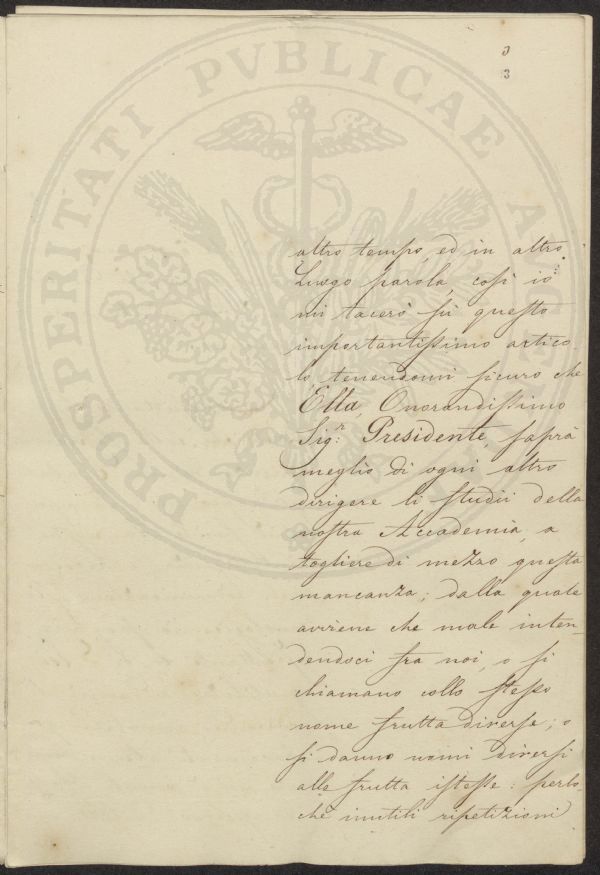 3
altro tempo, ed in altro
Luogo parola, così io
mi tacerò sù questo
importantissimo artico
lo, tenendomi sicuro che
Ella Onorandissimo
Sig.r Presidente, saprà
meglio di ogni altro
dirigere li studii della
nostra Accademia, a
togliere di mezzo questa
mancanza; dalla quale
avviene che male inten-
dendoci fra noi, o si
chiamano collo stesso
nome frutta diverse; o
si danno nomi diversi
alle frutta istesse: perlo-
chè inutili ripetizioni
PROSPERITATI PVBLICAE A